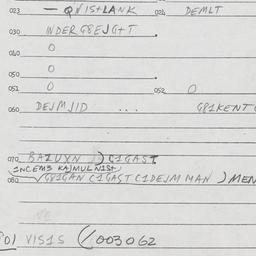 023 — QVIS+LANK 024 DEMLT
030 WDERG8EJG+T
040 O
050 O
051 O 052 O
060 DEJMJID ... G81KENT
070 BA2UXN ) C1GAST
1NCEMB KAJMULNIS+
080 G81GAN C1GAST C1DEJM MAN ) MEN
P01 VIS1S ( 003062